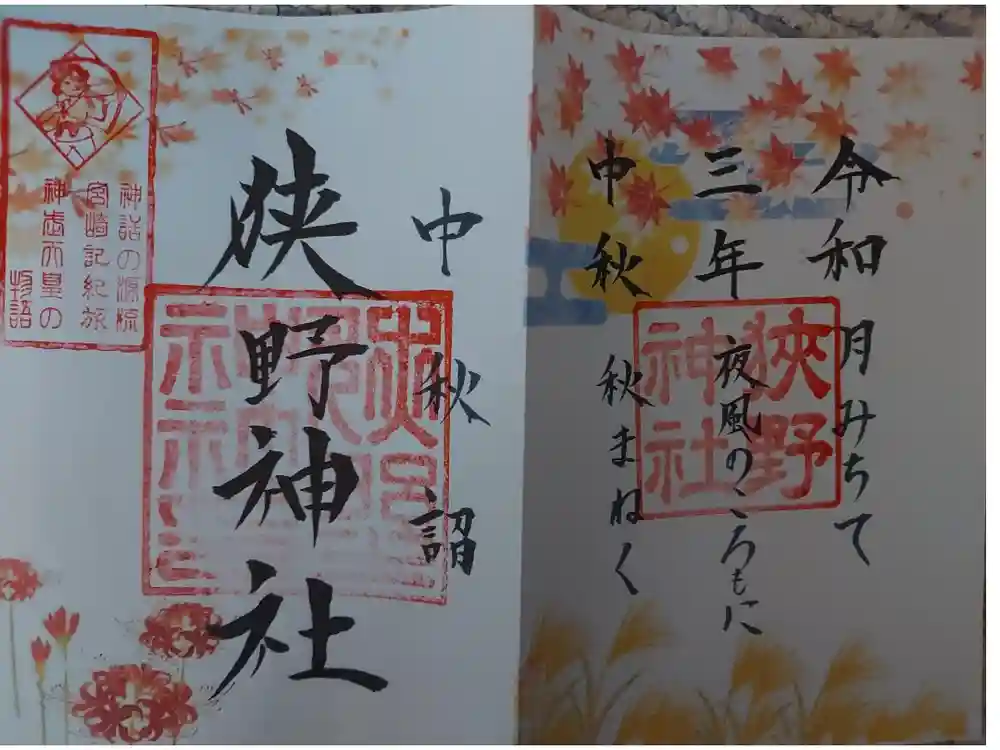 令和
三年
中秋
月みちて
夜風のころもに
秋まねく
狹野
神社
中秋詣
狭野神社
神話の源流
宮崎記紀旅
神武天皇の
物語